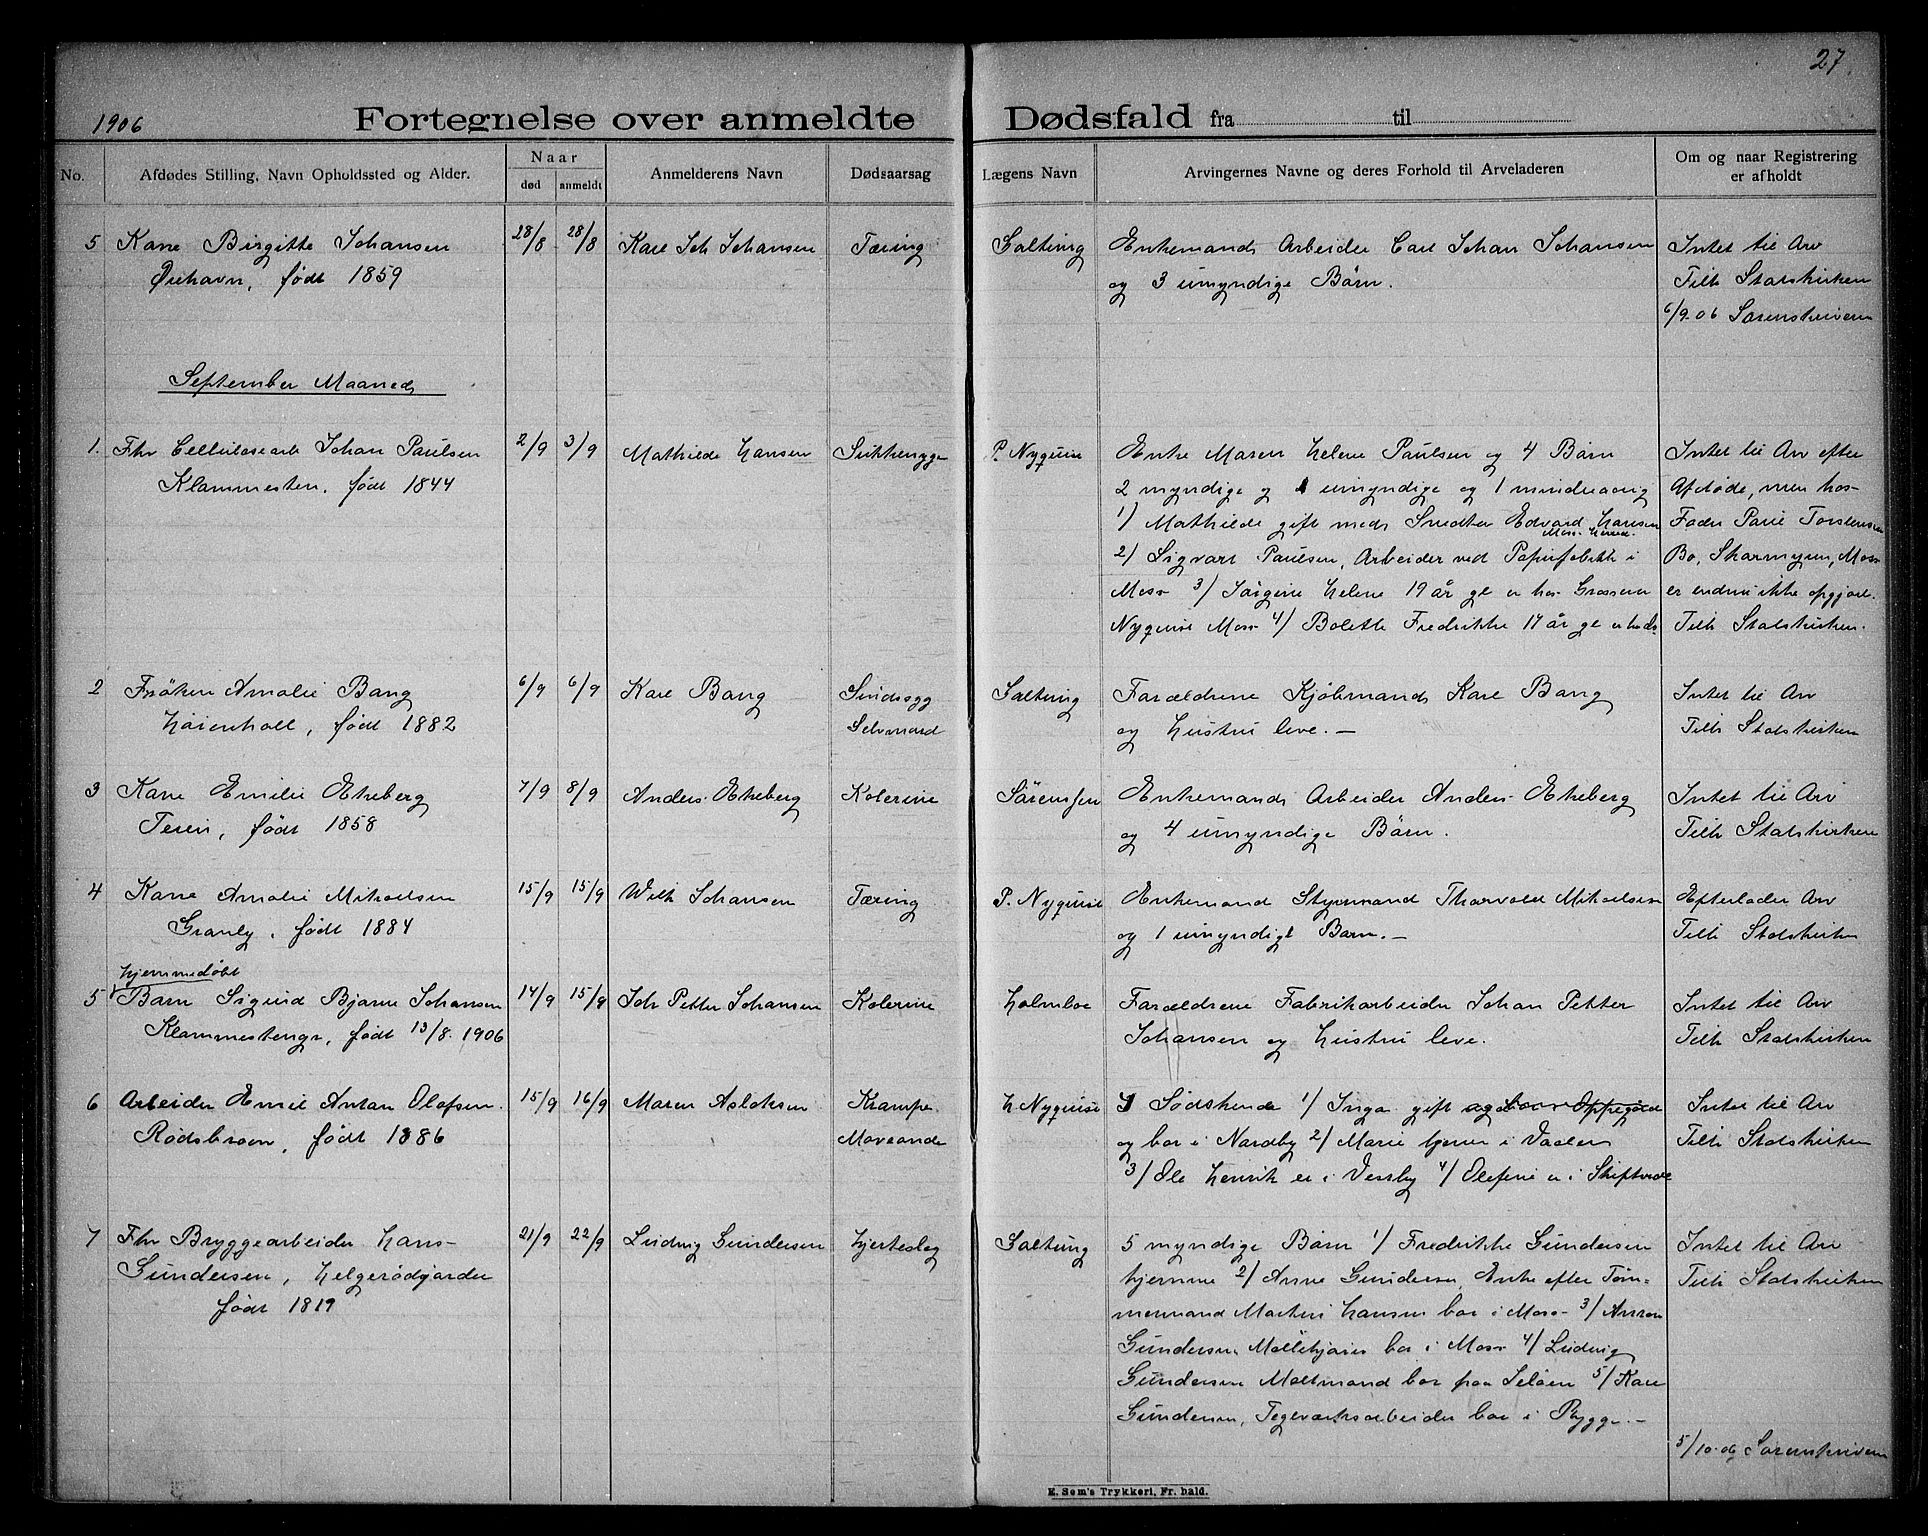 27.
1906 Fortegnelse over anmeldte Dødsfald fra til
No. Afdødes Stilling, Navn Opholdssted og Alder. Naar død anmeldt Anmelderens Navn Dødsaarsag Lægens Navn Arvingernes Navne og deres Forhold til Arveladeren Om og naar Registrering er afholdt
5 Kone Birgitte Johansen 28/8 28/8 Karl Joh Johansen Tæring Saltung Enkemand Arbeider Carl Johan Johansen Intet til Arv
Ørehavn, født 1859 og 3 umyndige Börn. Tilh Statskirken
6/9.06 Sorenskriveren
September Maaned
1. Fhv Cellulosearb Johan Paulsen 2/9 3/9 Mathilde Hansen Sukkersyge P. Nyquist Enke Maren Helene Paulsen og 4 Børn Intet til Arv efter
Klommesten, født 1844 2 myndige og 1 umyndige og 1 mindreaarig Afdøde, men hos
1) Mathilde gift med Snedker Edvard Hansen Moss Fader Paul Torstensen
2) Sigvart Paulsen, Arbeider ved Papirfabrikk i Bo, Skarmyren, Moss
Moss 3) Jørgine Helene 19 år gl er hos Grosserer er endnu ikke opgjort.
Nyquist Moss 4) Bolette Fredrikke 17 år gl Tilh Statskirken.
2 Frøken Amalie Bang 6/9 6/9 Karl Bang Sindssyg Saltung Forældrene Kjøbmand Karl Bang Intet til Arv
Høienhall, født 1882 Selvmord og Hustru leve. — Tilh Statskirken
3 Kone Emilie Ekeberg 7/9 8/9 Anders Ekeberg Kolerine Sörensen Enkemand Arbeider Anders Ekeberg Intet til Arv
Teien, født 1858 og 4 umyndige Börn. Tilh Statskirken
4 Kone Amalie Mikaelsen 15/9 15/9 Wilh Johansen Tæring P. Nyquist Enkemand Styrmand Thorvald Mikaelsen Efterlader Arv
Granly, født 1884 og 1 umyndigt Barn. — Tilh Statskirken
hjemmedøbt
5 Barn Sigurd Bjarne Johansen 14/9 15/9 Joh Petter Johansen Kolerine Holmboe Forældrene Fabrikarbeider Johan Petter Intet til Arv
Klommestengr, født 13/8.1906 Johansen og Hustru leve. Tilh Statskirken
6 Arbeider Emil Anton Olafsen. 15/9 16/9 Maren Aslaksen Krampe H Nyquist Sødskende 1) Inga gift og bor Oppegård Intet til Arv
Rødsbroen, født 1886 Morsonde og bor i Nordby 2) Marie tjener i Vaaler Tilh Statskirken
3) Ole Henrik er i Vestby 4) Olefine er i Skiptvedt
7 Fhv Bryggearbeider Hans 21/9 22/9 Ludvig Gundersen Hjerteslag Saltung 5 myndige Børn 1) Fredrikke Gundersen Intet til Arv
Gundersen, Helgerødgjorder hjemme 2) Anne Gundersen, Enke efter Töm- Tilh Statskirken
født 1819 mermand Martin Hansen bor i Moss 3) Anton
Gundersen Møllekjører bor i Moss 4) Ludvig
Gundersen Maltmand bor paa Jeløen 5) Karl
Gundersen, Teglværksarbeider bor i Rygge. —
5/10.06 Sorenskriveren
E. Sem's Trykkeri, Fr.hald.